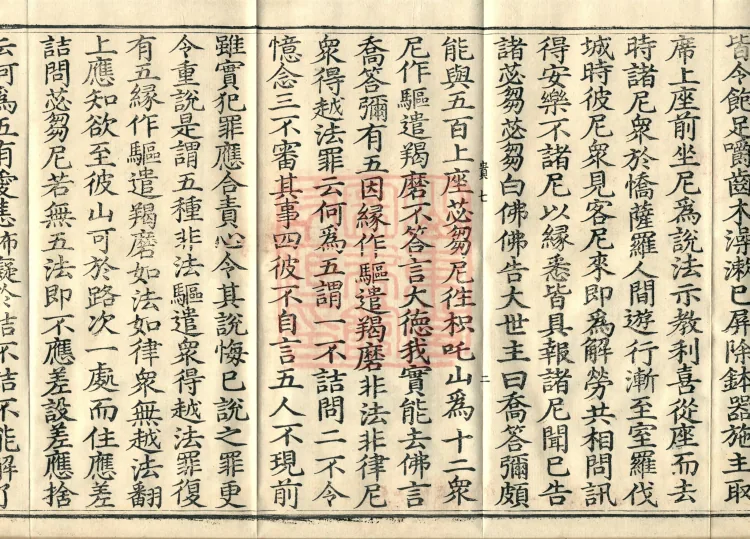 皆令飽足嚼齒木澡漱已屏除鉢器施主取
席上座前坐尼爲說法示教利喜從座而去
時諸尼衆於憍薩羅人間遊行漸至室羅伐
城時彼尼衆見客尼來即爲解勞共相問訊
得安樂不諸尼以緣悉皆具報諸尼聞已告
諸苾芻苾芻白佛佛告大世主曰喬答彌頗
能與五百上座苾芻尼往枳吒山爲十二衆
尼作驅遣羯磨不答言大德我實能去佛言
喬答彌有五因緣作驅遣羯磨非法非律尼
衆得越法罪云何爲五謂一不詰問二不令
憶念三不審其事四彼不自言五人不現前
雖實犯罪應合責心令其說悔已說之罪更
令重說是謂五種非法驅遣衆得越法罪復
有五緣作驅遣羯磨如法如律衆無越法翻
上應知欲至彼山可於路次一處而住應差
詰問苾芻尼若無五法即不應差設差應捨
云何爲五有愛恚怖癡於詰不詰不能解了
七
二